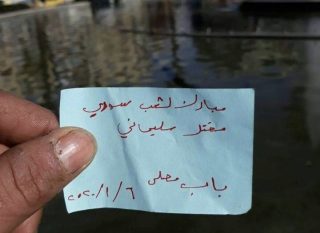 مبارك لشعب سوري
مقتل سليماني
باب مصلى
٢٠٢٠/١/٦